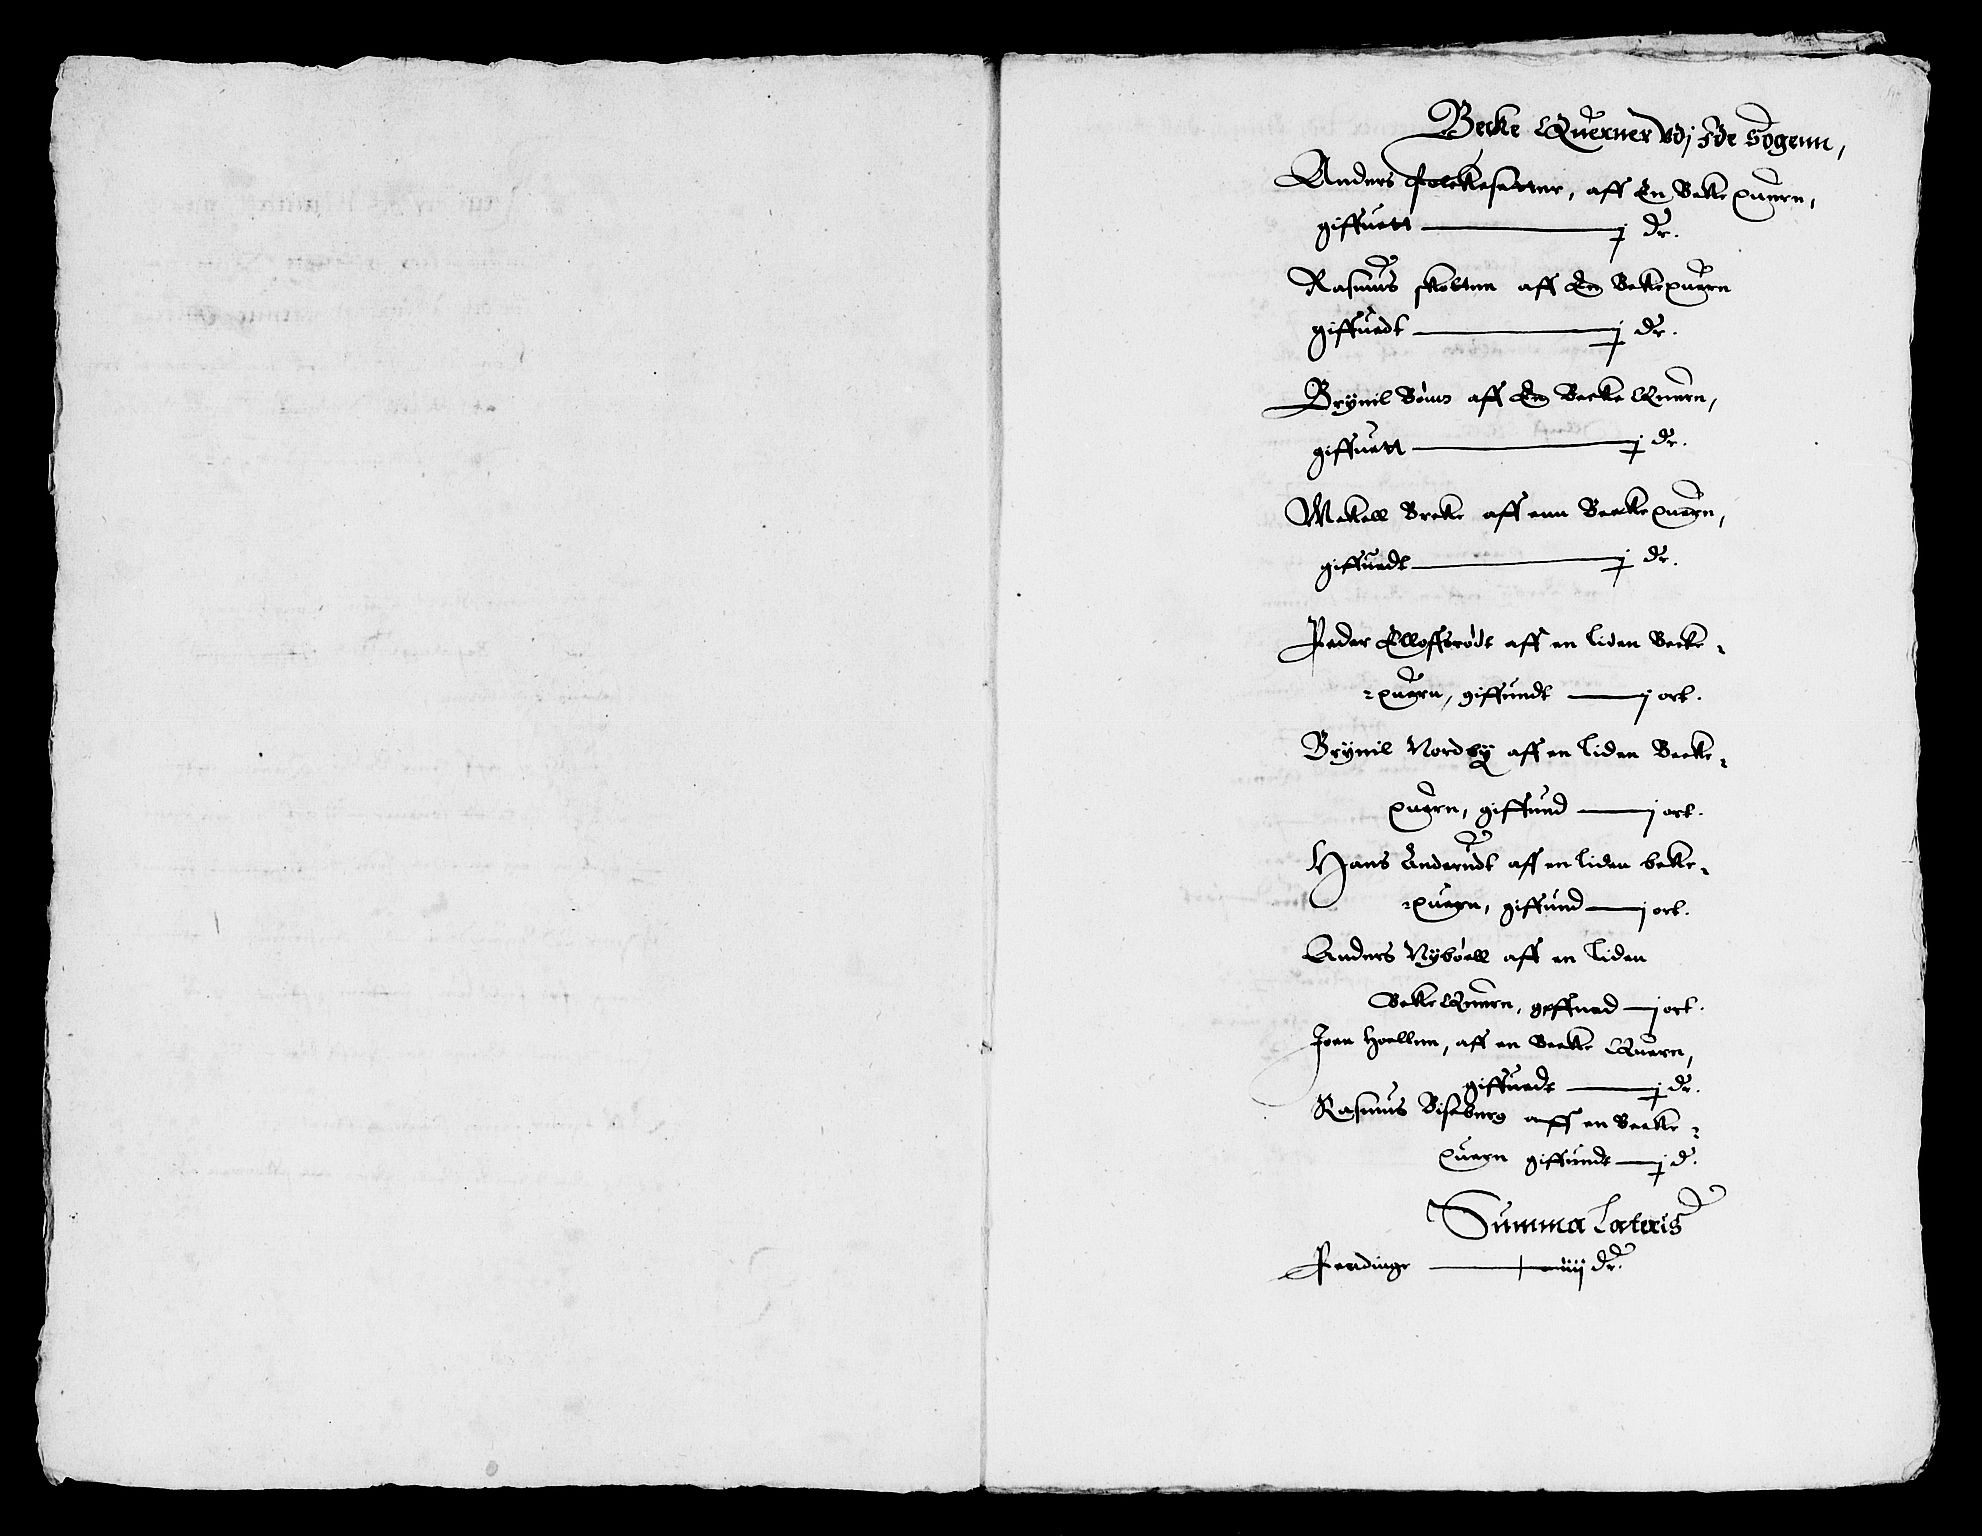 Becke Quernner vdj Ide Sogenn,
Anders folckesetter, aff En Becke quern,
giffuett — j dr.
Rasmus skolten aff En Beckequern
giffuedt — j dr.
Brÿnil Böms aff En Becke Quern,
giffuett — j dr.
Mekell Breke aff enn Beckequern,
giffuedt — j dr.
Peder Elloffsrödt aff en liden Becke-
-quern, giffuindt — j ort.
Brÿnil Nordbÿ aff en liden Becke-
quern, giffuind — j ort.
Hans Anderudt aff en liden becke-
-quern, giffuind — j ort.
Anders Nÿböell aff en liden
Becke Quern, geffued — j ort.
Joen Hoellen, aff en Becke Quern,
giffuedt — j dr.
Rasmus Biseberg aff en Becke-
quern giffuindt — j d.
Summa Lateris
Pendinge — dr.